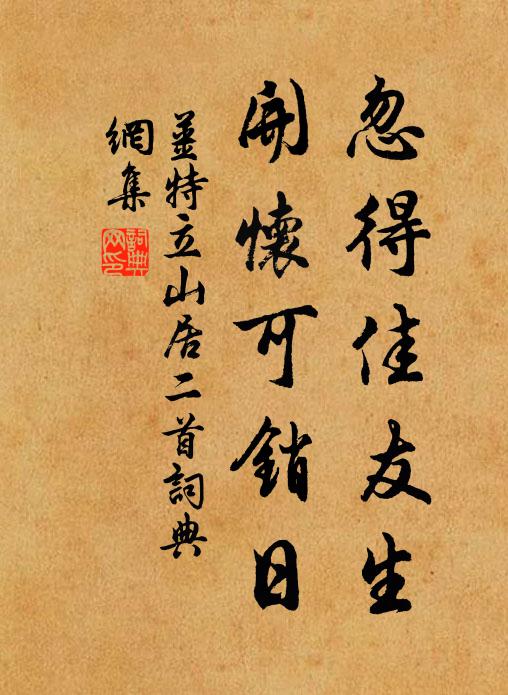 忽得佳友生
開懷可銷日
薑特立山居二首詞典
網集
詞典網印